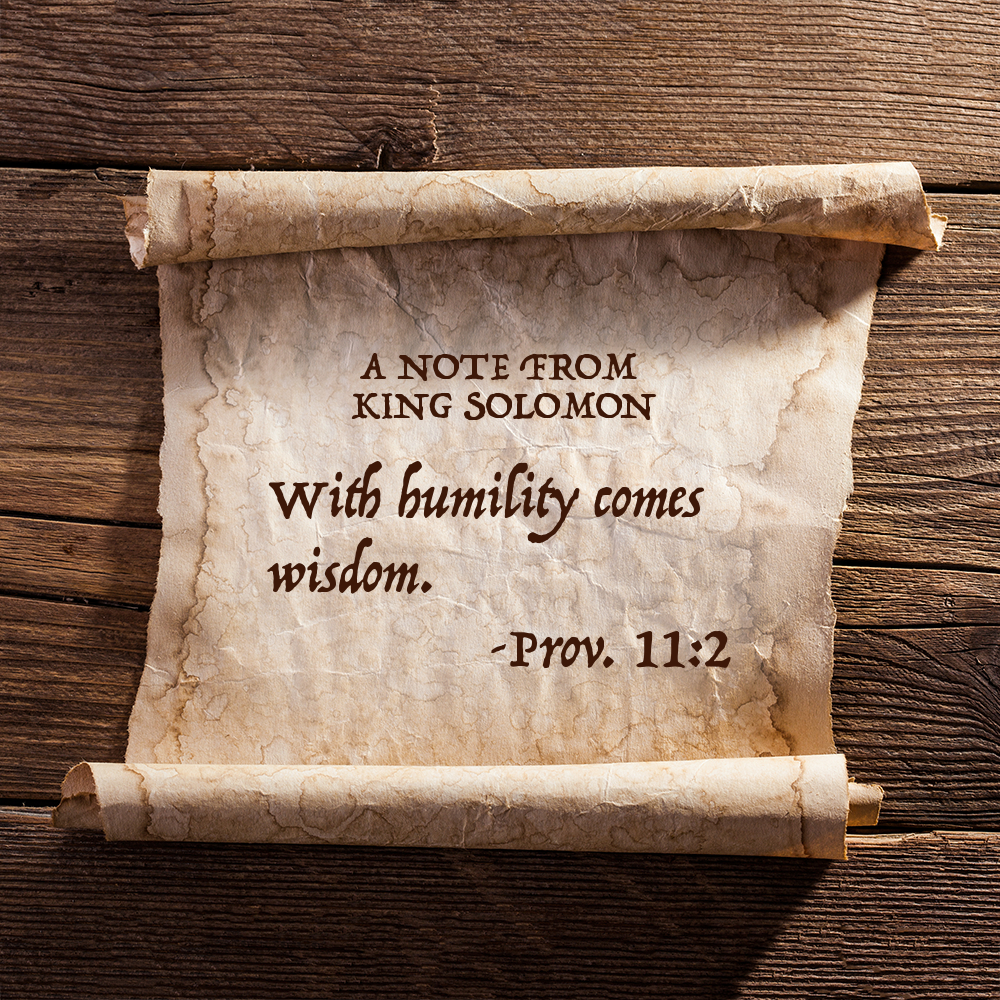 A NOTE FROM
KING SOLOMON
With humility comes
wisdom.
-Prov. 11:2